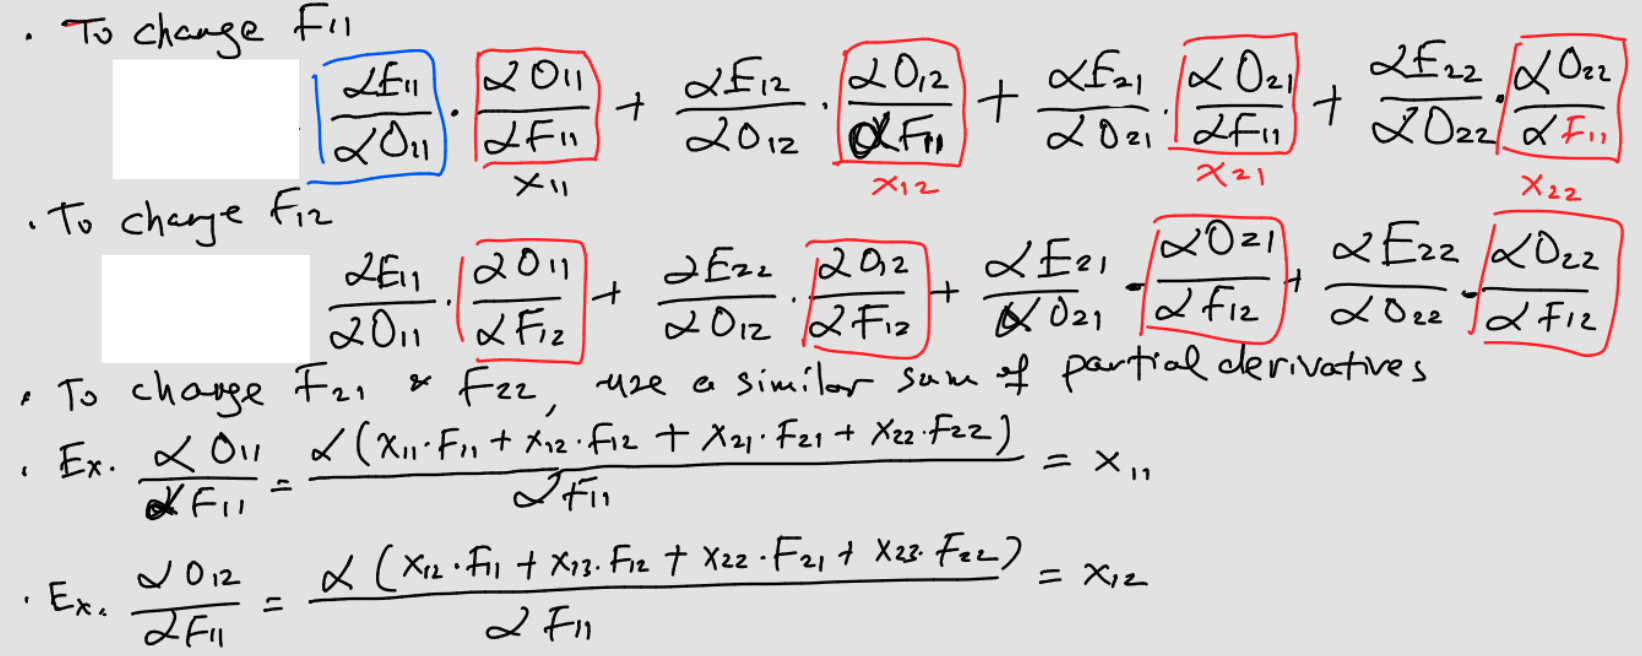 . To change F11
αE11/αO11 · αO11/αF11 + αE12/αO12 · αO12/αF11 + αE21/αO21 · αO21/αF11 + αE22/αO22 · αO22/αF11
x11 x12 x21 x22
. To change F12
αE11/αO11 · αO11/αF12 + αE22/αO12 · αO12/αF12 + αE21/αO21 · αO21/αF12 + αE22/αO22 · αO22/αF12
. To change F21 & F22, use a similar sum of partial derivatives
. Ex. αO11/αF11 = α(x11·F11 + x12·F12 + x21·F21 + x22·F22)/αF11 = x11
. Ex. αO12/αF11 = α(x12·F11 + x13·F12 + x22·F21 + x23·F22)/αF11 = x12